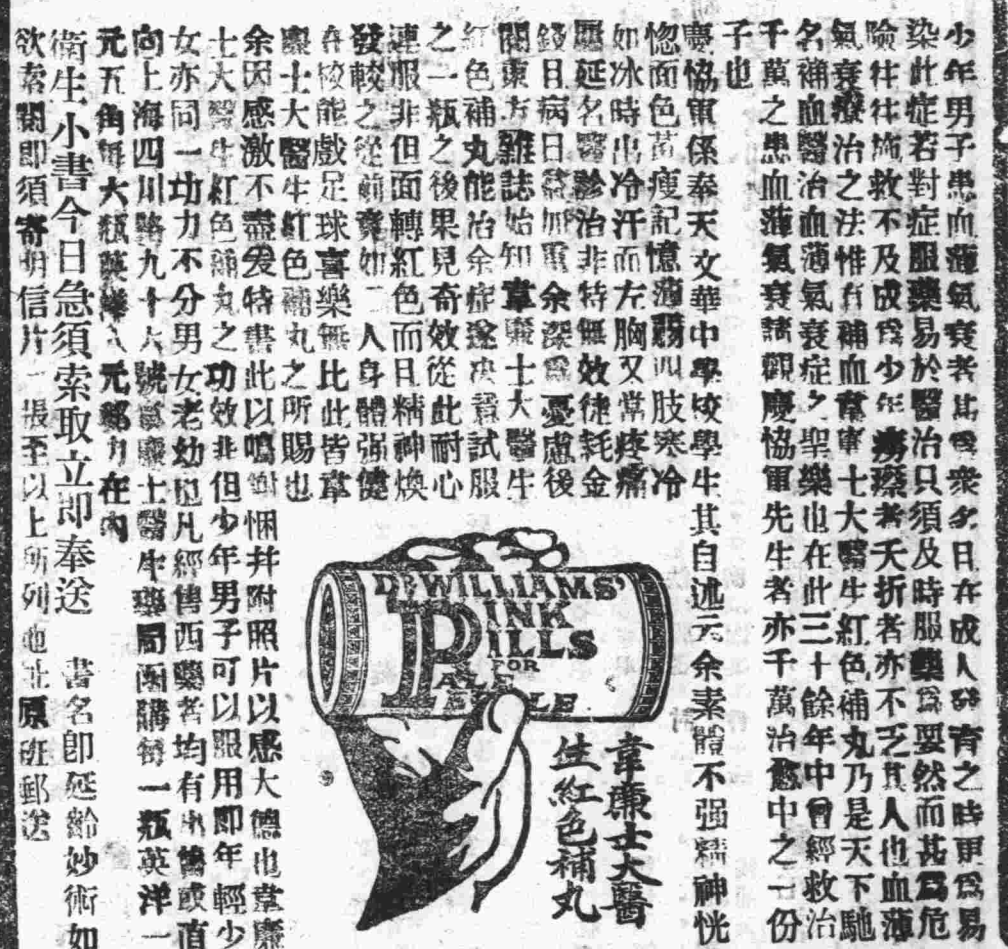 少年男子患血薄氣衰者其爲衆多日在成人發育之時更爲易
染此症若對症服藥易於醫治只須及時服藥爲要然而甚爲危
險往往施救不及成爲少年癆瘵者夭折者亦不乏其人也血薄
氣衰療治之法惟有補血韋廉士大醫生紅色補丸乃是天下馳
名補血醫治血薄氣衰症之聖藥也在此三十餘年中曾經救治
千萬之患血薄氣衰請觀慶協軍先生者亦千萬治愈中之一份
子也
慶協軍係奉天文華中學校學生其自述云余素體不强精神恍
惚面色黃瘦記憶薄弱四肢寒冷
如冰時出冷汗而左胸又常疼痛
屢延名醫診治非特無效徒耗金
錢日病日益加重余深爲憂慮後
閱東方雜誌始知韋廉士大醫生
紅色補丸能治余症遂决意試服
之一瓶之後果見奇效從此耐心
連服非但面轉紅色而且精神煥
發較之從前竟如二人身體强健
在校能戲足球喜樂無比此皆韋
廉士大醫生紅色補丸之所賜也
余因感激不盡爰特書此以鳴謝悃并附照片以感大德也韋廉
士大醫生紅色補丸之功效非但少年男子可以服用即年輕少
女亦同一功力不分男女老幼也凡經售西藥者均有出售或直
向上海四川路九十六號韋廉士醫生藥局函購每一瓶英洋一
元五角每大瓶英洋八元郵力在內
衛生小書今日急須索取立即奉送 書名即延齡妙術如
欲索閱即須寄明信片一張至以上所列地址原班郵送
DR WILLIAMS'
PINK
PILLS
FOR
PALE
PEOPLE
韋廉士大醫
生紅色補丸